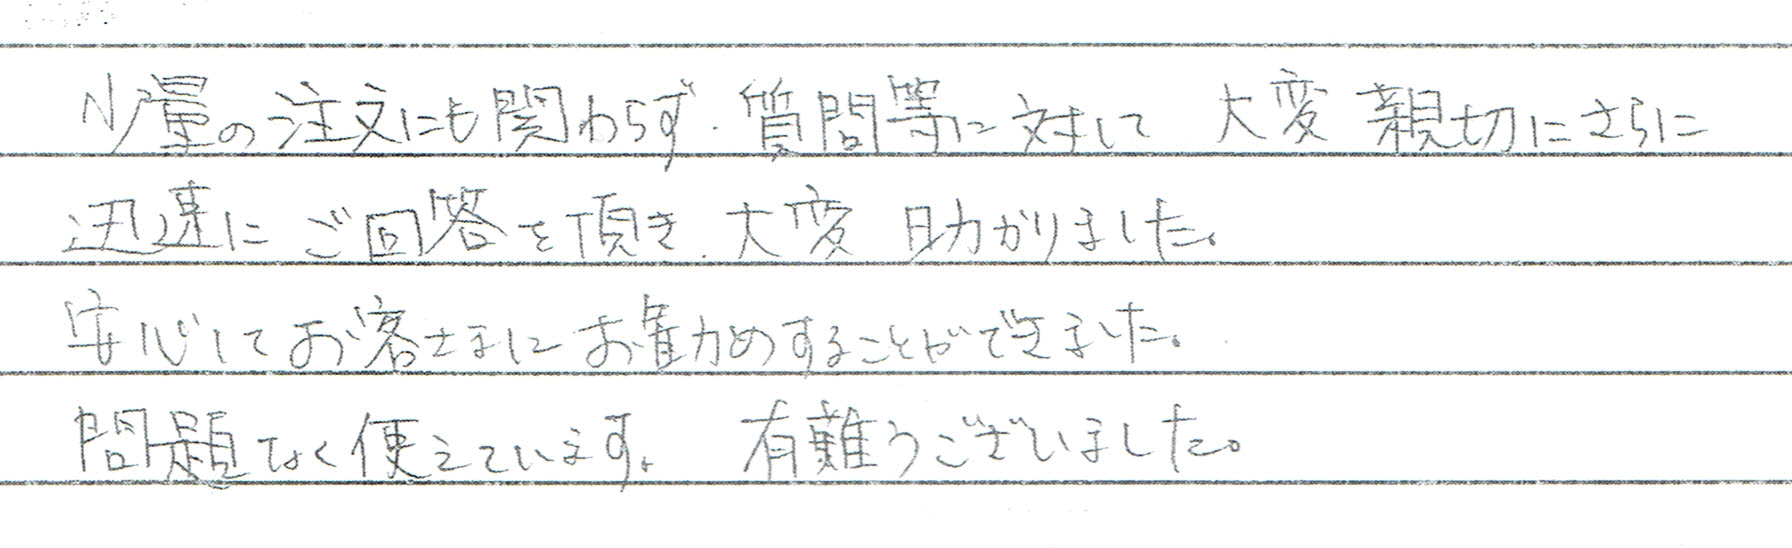 少量の注文にも関わらず、質問等に対して 大変 親切にさらに
迅速に ご回答を頂き、大変 助かりました。
安心してお客さまにお勧めすることができました。
問題なく使えています。 有難うございました。